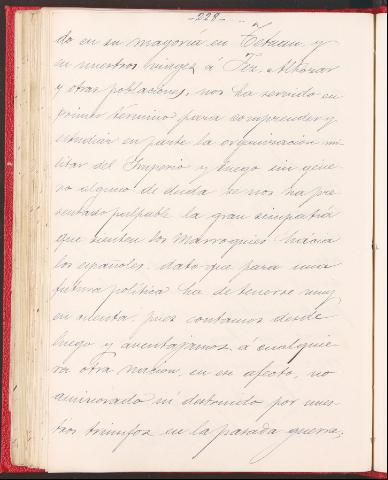 -228-
do en su mayoría en Tetuan, y
en nuestros viages á Fez, Alkazar
y otras poblaciones, nos ha servido en
primer término para comprender y
estudiar en parte la organizacion mi
litar del Imperio y luego sin gene
ro alguno de duda se nos ha pre
sentado palpable la gran simpatia
que sienten los marroquies hácia
los españoles. dato que para una
futura política ha de tenerse muy
en cuenta. pues contamos desde
luego y aventajamos á cualquie
ra otra nacion, en su afecto, no
aminorado ni destruido por nues
tros triunfos en la pasada guerra,